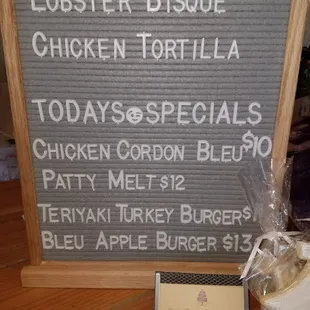 LOBSTER BISQUE
CHICKEN TORTILLA
TODAYS SPECIALS
CHICKEN CORDON BLEU $10
PATTY MELT $12
TERIYAKI TURKEY BURGER
BLEU APPLE BURGER $13